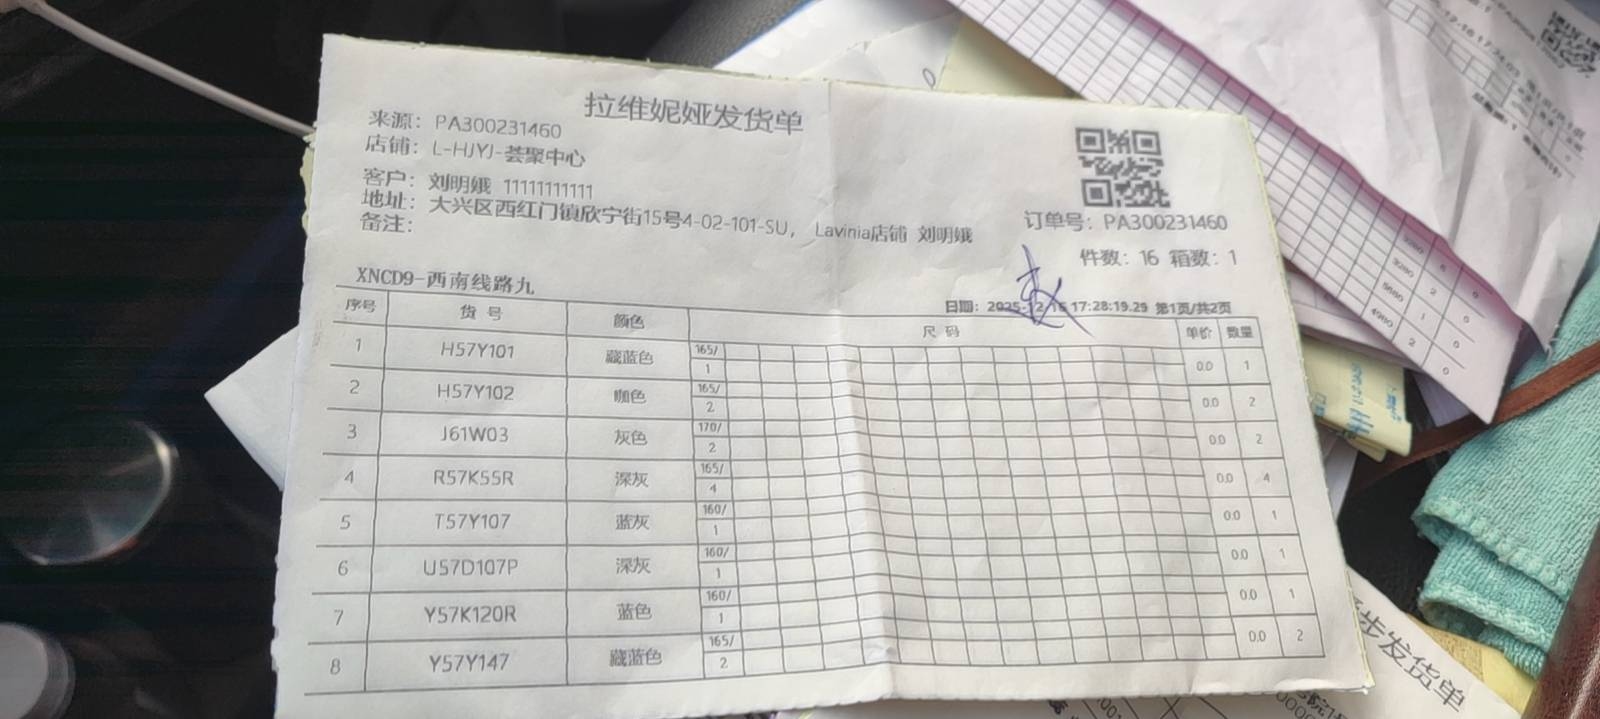 拉维妮娅发货单
来源：PA300231460
店铺：L-HJYJ-荟聚中心
客户：刘明娥 11111111111
地址：大兴区西红门镇欣宁街15号4-02-101-SU， Lavinia店铺 刘明娥
备注：
订单号：PA300231460
件数：16 箱数：1
XNCD9-西南线路九
日期：2025-12-16 17:28:19.29 第1页/共2页
序号 货号 颜色 尺码 单价 数量
1 H57Y101 藏蓝色 165/ 1 0.0 1
2 H57Y102 咖色 165/ 2 0.0 2
3 J61W03 灰色 170/ 2 0.0 2
4 R57K55R 深灰 165/ 4 0.0 4
5 T57Y107 蓝灰 160/ 1 0.0 1
6 U57D107P 深灰 160/ 1 0.0 1
7 Y57K120R 蓝色 160/ 1 0.0 1
8 Y57Y147 藏蓝色 165/ 2 0.0 2
步发货单